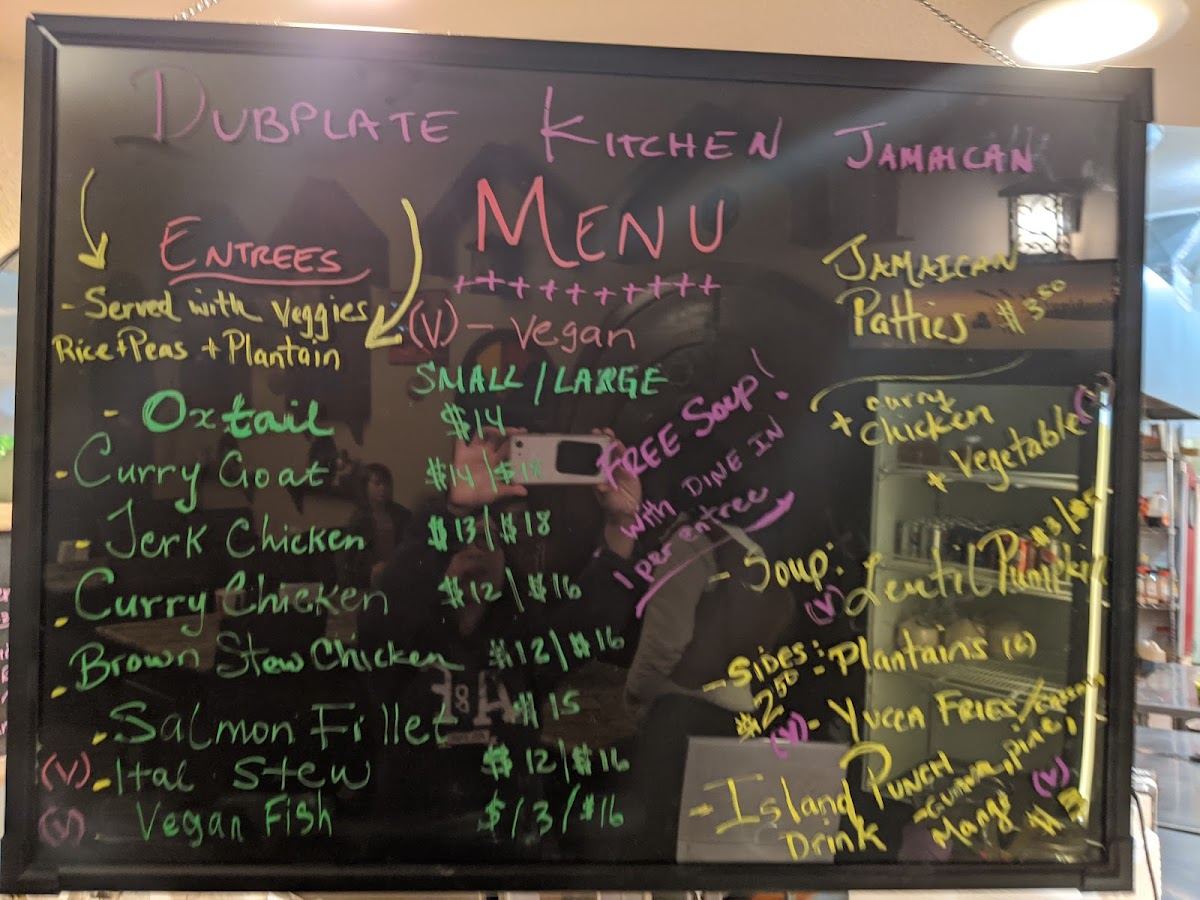 DUBPLATE KITCHEN JAMAICAN
MENU
ENTREES
- Served with Veggies
Rice + Peas + Plantain
(V) - Vegan
SMALL / LARGE
- Oxtail $14
- Curry Goat $14 / $18
- Jerk Chicken $13 / $18
- Curry Chicken $12 / $16
- Brown Stew Chicken $12 / $16
- Salmon Fillet $15
(V) - Ital Stew $12 / $16
(V) - Vegan Fish $13 / $16
FREE Soup!
with DINE IN
1 per entree
JAMAICAN
Patties $3.50
+ curry
chicken
+ Vegetable
- Soup: $3 / $5
(V) Lentil Pumpkin
- SIDES: - Plantains (6)
$2.50
(V) - YUCCA FRIES /
- Island PUNCH
Drink
- Guava, pine,
Mango (V)
$3